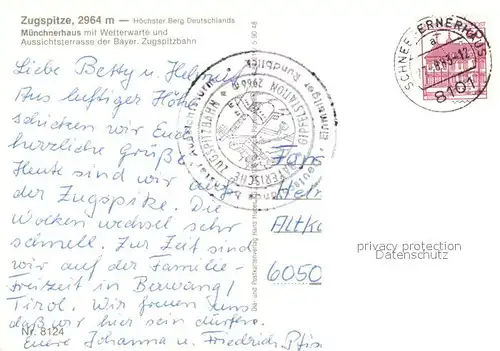 Zugspitze, 2964 m — Höchster Berg Deutschlands
Münchnerhaus mit Wetterwarte und
Aussichtsterrasse der Bayer. Zugspitzbahn
Liebe Betty u. Helmut
Aus luftiger Höhe
schicken wir Euch
herzliche Grüße
Heute sind wir auf
der Zugspitze. Die
Wolken wechseln sehr
schnell. Zur Zeit sind
wir auf der Familie-
Freizeit in Berwang/
Tirol. Wir freuen uns
daß wir hier sein dürfen.
Eure Johanna u. Friedrich
Nr. 8124
BAYERISCHE ZUGSPITZBAHN
GIPFELSTATION 2966 m
SCHNEEFERNERHAUS
8101
Fam
6050
privacy protection
Datenschutz